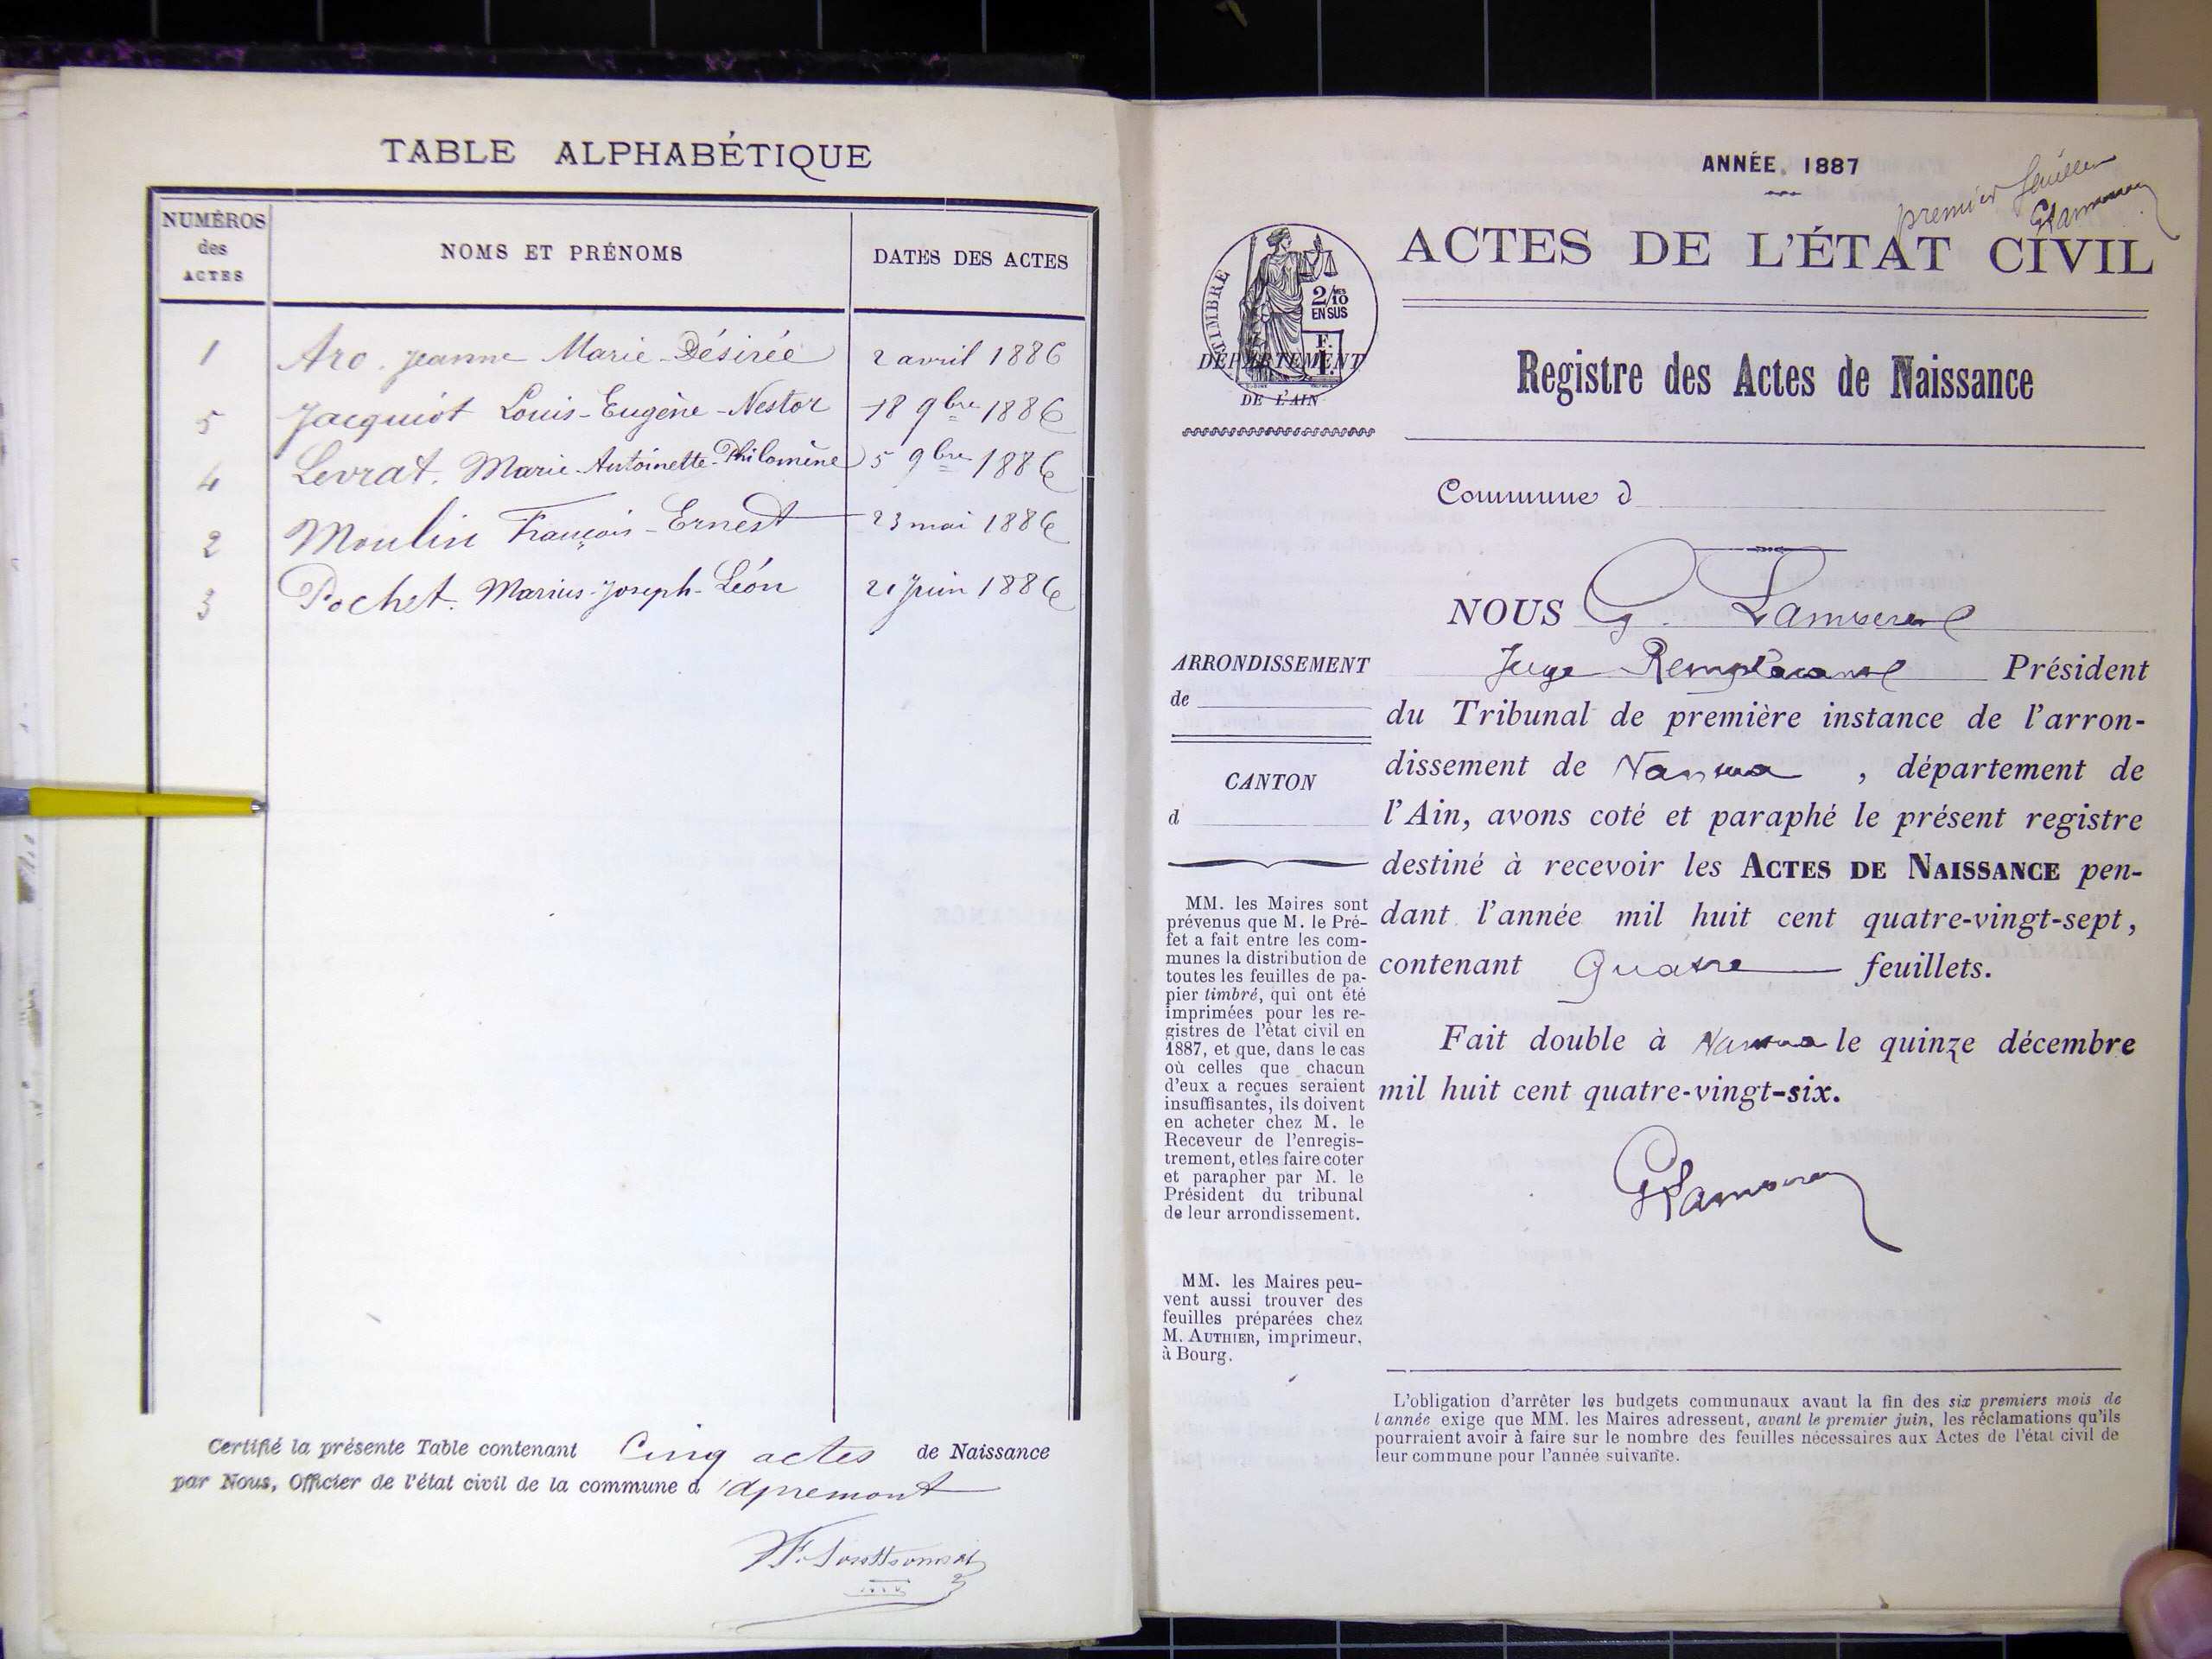 TABLE ALPHABÉTIQUE
NUMÉROS
des
ACTES
NOMS ET PRÉNOMS
DATES DES ACTES
1 Aro. Jeanne Marie-Désirée 2 avril 1886
5 Jacquiot Louis-Eugène-Nestor 18 9bre 1886
4 Levrat. Marie-Antoinette-Philomène 5 9bre 1886
2 Moulin François-Ernest 23 mai 1886
3 Pochet. Marius-Joseph-Léon 21 Juin 1886
Certifié la présente Table contenant Cinq actes de Naissance
par Nous, Officier de l'état civil de la commune d'Apremont
ANNÉE 1887
premier feuillet
ACTES DE L'ÉTAT CIVIL
TIMBRE
2/10
EN SUS
F.
DÉPARTEMENT
DE L'AIN
Registre des Actes de Naissance
Commune d
NOUS G.
Juge Remplaçant Président
du Tribunal de première instance de l'arron-
dissement de Nantua, département de
l'Ain, avons coté et paraphé le présent registre
destiné à recevoir les ACTES DE NAISSANCE pen-
dant l'année mil huit cent quatre-vingt-sept,
contenant Quatre feuillets.
Fait double à Nantua le quinze décembre
mil huit cent quatre-vingt-six.
ARRONDISSEMENT
de
CANTON
d
MM. les Maires sont
prévenus que M. le Pré-
fet a fait entre les com-
munes la distribution de
toutes les feuilles de pa-
pier timbré, qui ont été
imprimées pour les re-
gistres de l'état civil en
1887, et que, dans le cas
où celles que chacun
d'eux a reçues seraient
insuffisantes, ils doivent
en acheter chez M. le
Receveur de l'enregis-
trement, et les faire coter
et parapher par M. le
Président du tribunal
de leur arrondissement.
MM. les Maires peu-
vent aussi trouver des
feuilles préparées chez
M. AUTHIER, imprimeur,
à Bourg.
L'obligation d'arrêter les budgets communaux avant la fin des six premiers mois de
l'année exige que MM. les Maires adressent, avant le premier juin, les réclamations qu'ils
pourraient avoir à faire sur le nombre des feuilles nécessaires aux Actes de l'état civil de
leur commune pour l'année suivante.